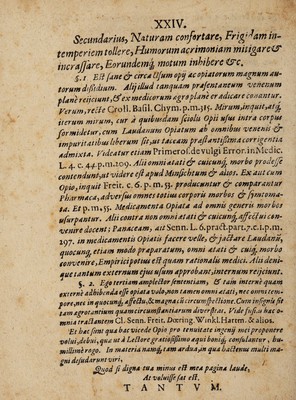 XXIV.
Secundarius, Naturam confortare, Frigidam in-
temperiem tollere, Humorum acrimoniam mitigare &
incrassare, Eorundemq; motum inhibere &c.
§. 1. Est sane & circa Usum opij ac opiatorum magnum au-
torum dissidium. Alij illud tanquam præsentaneum venenum
plane rejiciunt, & ex medicorum agro plane eradicare conantur.
Verum, recte Croll. Basil. Chym. p. m. 315. Mirum, inquit, atq;
iterum mirum, cur à quibusdam sciolis Opii usus intra corpus
formidetur, cum Laudanum Opiatum ab omnibus venenis &
impuritatibus liberum sit, aut taceam præstantissima corrigentia
admixta. Videatur etiam Primeros. de vulgi Error. in Medic.
L. 4. c. 44 p. m. 209. Alii omni ætati & cuicunq; morbo prodesse
contendunt, ut videre est apud Minsichtum & alios. Ex aut cum
Opio, inquit Freit. c. 6. p. m. 53. producuntur & comparantur
Pharmaca, adversus omnes totius corporis morbos & symtoma-
ta. Et p. m. 55. Medicamenta Opiata ad omnis generis morbos
usurpantur. Alii contra non omni ætati & cuicunq; affectui con-
venire docent; Panaceam, ait Senn. L. 6. pract. part. 7. c. 1. p. m.
297. in medicamentis Opiatis facere velle, & jactare Laudanū,
quocunq; etiam modo præparatum, omni ætati & cuiq; morbo
convenire, Empirici potius est quam rationalis medici. Alii deni-
que tantum externum ejus usum approbant, internum rejiciunt.
§. 2. Ego tertiam amplector sententiam, & tam interne quam
externe adhibenda esse opiata volo, non tamen omni ætati, nec omni tem-
pore, nec in quocunq; affectu, & magna cū circumspectione. Cum insignis sit
tam ægrotantium quam circumstantiarum diversitas. Vide fusius hac o-
mnia tractantem Cl. Senn. Freit. Dœring. Winkl. Harem. & alios.
Et hæc sunt quæ hac vicede Opio pro tenuitate ingenij mei proponere
volui, debui, quæ ut à Lectore gratiosissimo æqui boniq; consulantur, hu-
millime rogo. In materia namq; tam ardua, in qua hactenus multi ma-
gni desudarunt viri.
Quod si digna tua minus est mea pagina laude,
At voluisse sat est.
TANTUM.